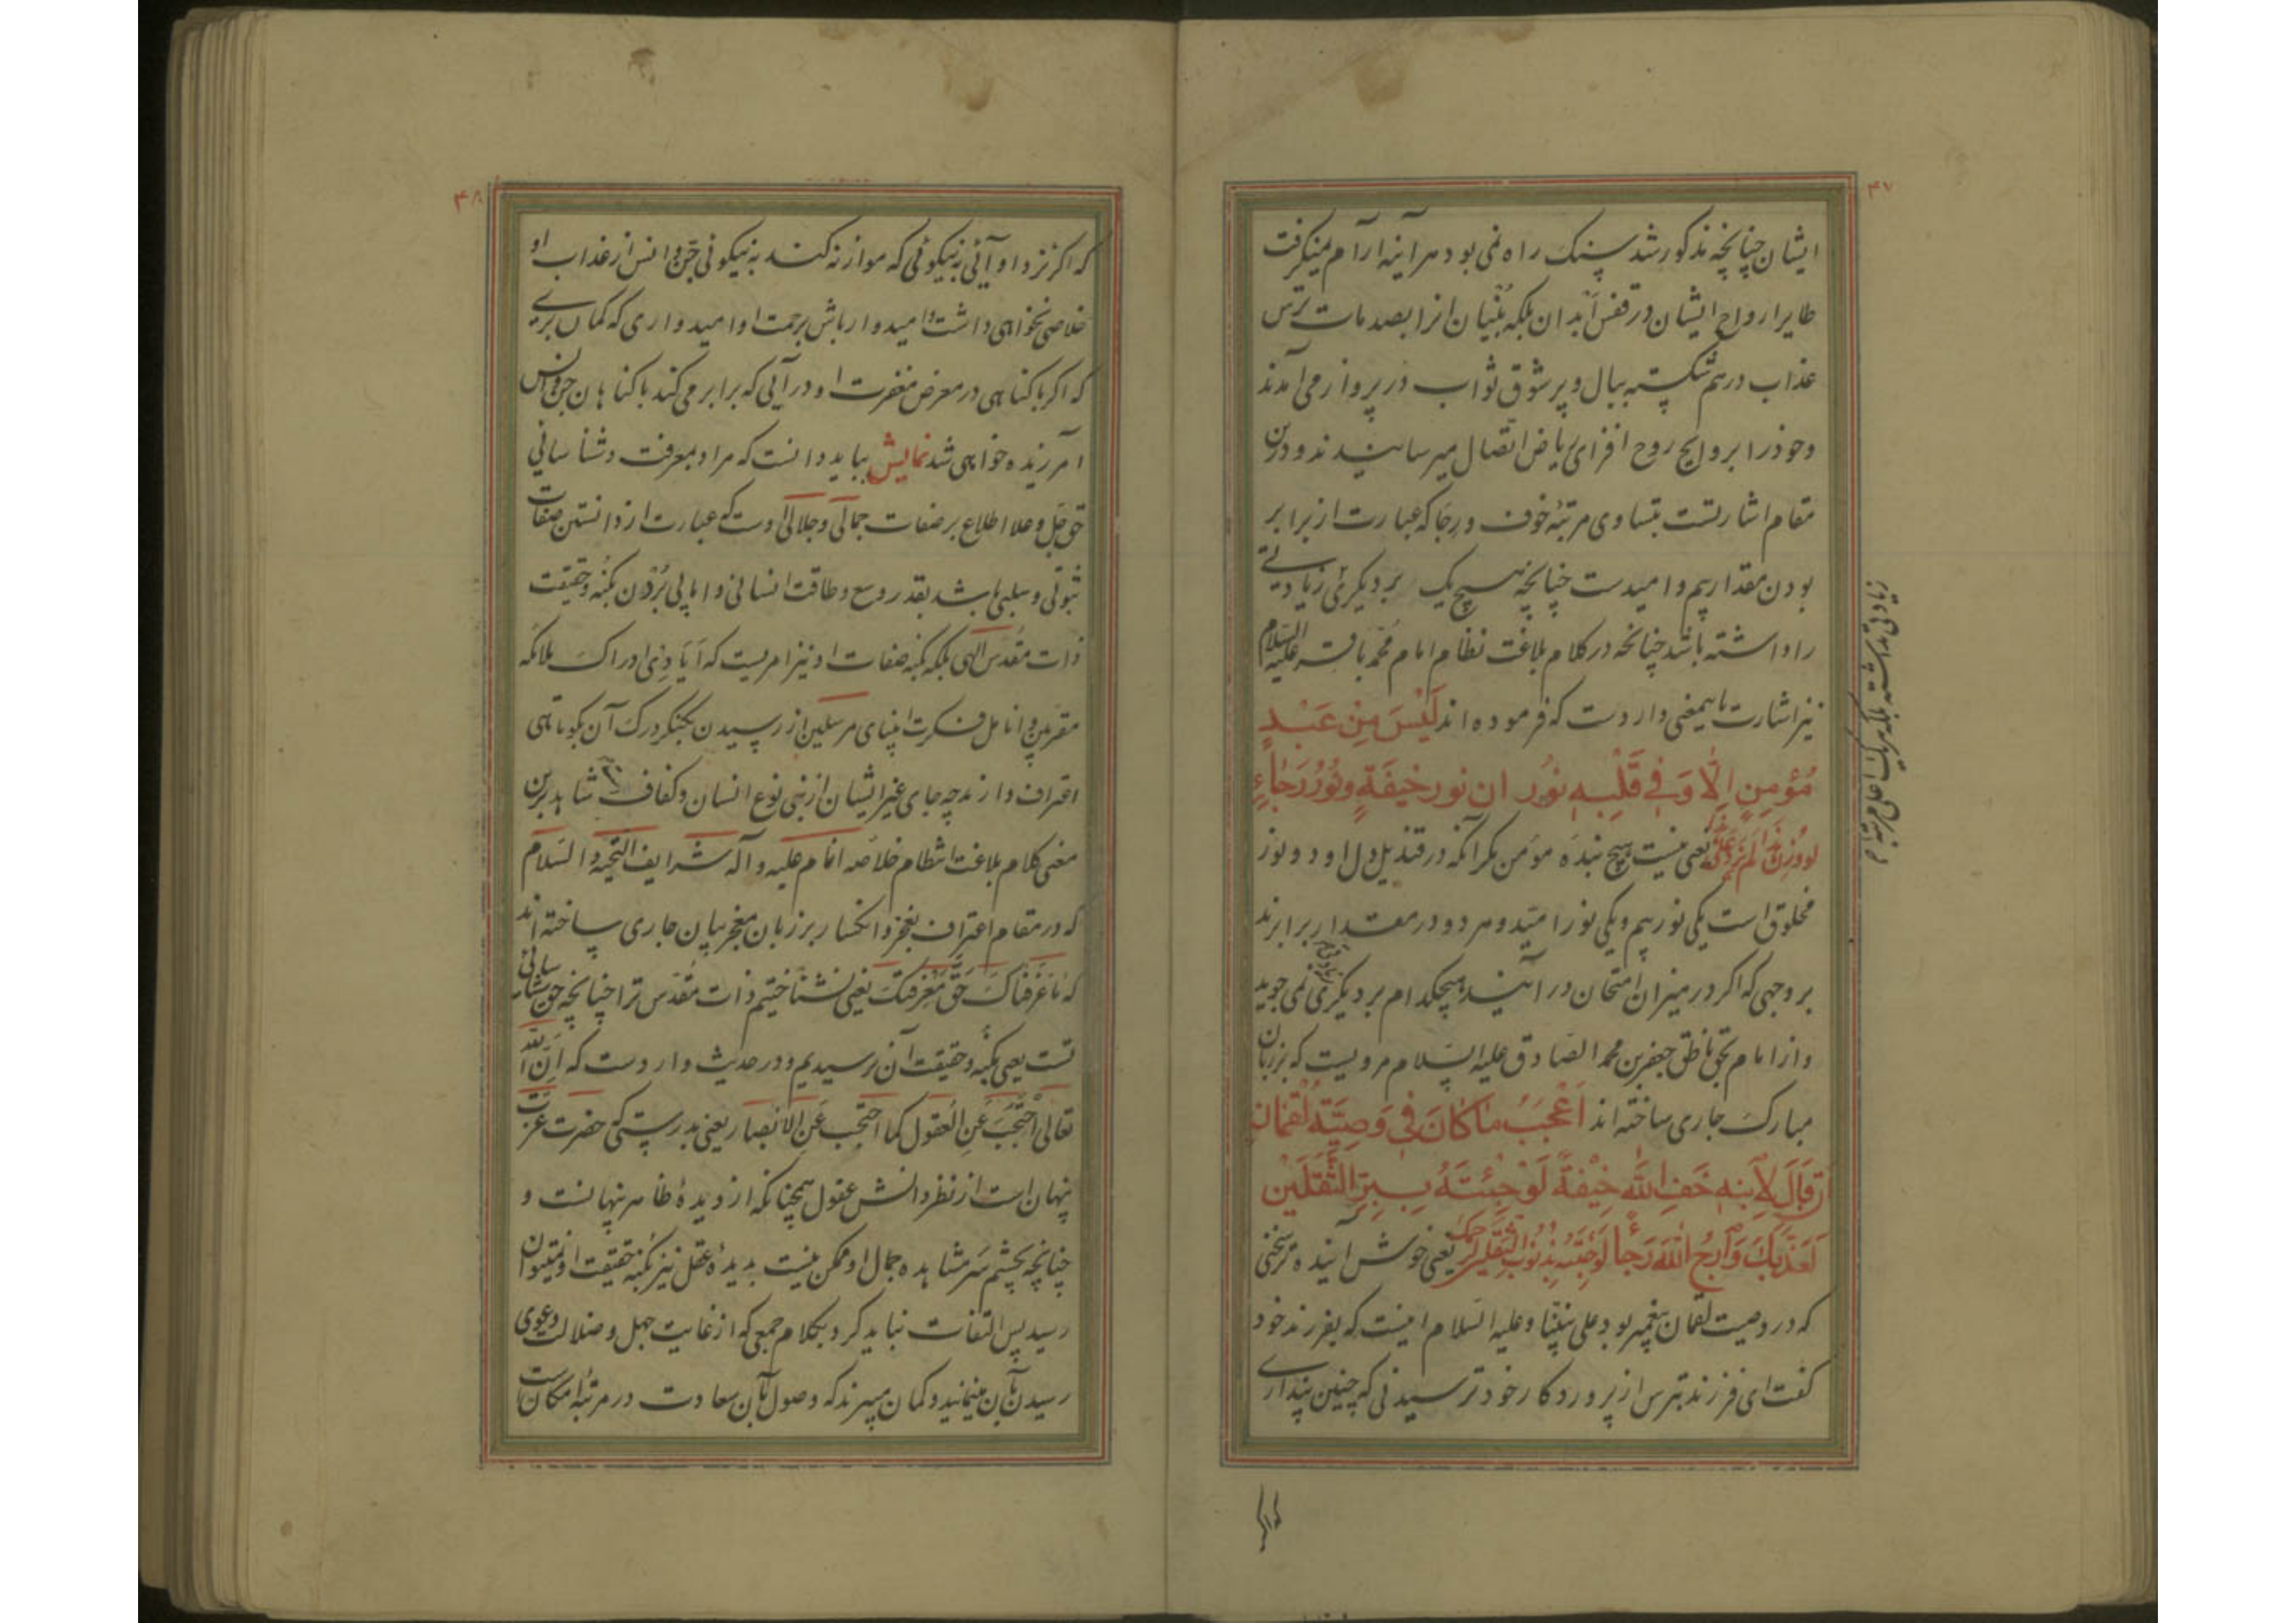 ۴۷
ایشان چنانچه مذکور شد سنک راه نمی بود هر اینه ارام نمیکرفت
طایر ارواح ایشان در قفس ابدان بلکه بنیان انرا بصدمات ترس
عذاب در هم شکسته ببال و پر شوق ثواب در پرواز می آمدند
و خود را بروایح روح افزای ریاض اتصال میرسانیدند و درین
مقام اشارتست بتساوی مرتبهٔ خوف و رجا که عبارت از برابر
بودن مقدار بیم و امیدست چنانچه هیچ یک بر دیکری زیادتی
را نداشته باشد چنانچه در کلام بلاغت نظام امام محمد باقر علیه السلام
نیز اشارت باینمعنی واردست که فرموده اند لَیْسَ مِنْ عَبْدٍ
مُؤْمِنٍ اِلّا وَ فِی قَلْبِهِ نُورُ ان نور خیفَةٍ وَ نُورُ رَجاءٍ
لو وُزِنَ هذا لم یزد علی هذا یعنی نیست هیچ بندهٔ مؤمن مکر انکه در قندیل دل او دو نور
مخلوق است یکی نور بیم و یکی نور امید و هر دو در مقدار برابرند
بر وجهی که اکر در میزان امتحان در آیند هیچکدام بر دیکری نمی جوید
و از امام بحق ناطق جعفر بن محمد الصادق علیه السلام مرویست که بر زبان
مبارک جاری ساخته اند اَعْجَبُ ما کانَ فی وَصِیَّةِ لُقْمانَ
ان قالَ لِابْنِهِ خَفِ اللهَ خیفَةً لَوْ جِئْتَهُ بِبِرِّ الثَّقَلَیْنِ
لَعَذَّبَکَ وَ ارْجُ اللهَ رَجاءً لَوْ جِئْتَهُ بِذُنُوبِ الثَّقَلَیْنِ لرحمک یعنی خوش آینده تر سخنی
که در وصیت لقمان پیغمبر بود علی نبینا و علیه السلام اینست که بفرزند خود
کفت ای فرزند بترس از پروردکار خود ترسیدنی که چنین پنداری
که اکر
۴۸
که اکر نزد او آئی به نیکوئی که موازنه کند به نیکوئی جن و انس از عذاب او
خلاصی نخواهی داشت و امیدوار باش برحمت او امیدواری که کمان بری
که اکر با کناهی در معرض مغفرت او در آیی که برابر می کند با کناهان جن و انس
آمرزیده خواهی شد نمایش بباید دانست که مراد بمعرفت و شناسائی
حق جل و علا اطلاع بر صفات جمالی و جلالی اوست که عبارت از دانستن صفات
ثبوتی و سلبی باشد بقدر وسع و طاقت انسانی و اما پی بردن بکنه و حقیقت
ذات مقدس الهی بلکه بکنه صفات او نیز امریست که ایادی ادراک ملائکه
مقربین و انامل فکرت انبیای مرسلین از رسیدن بکنکر درک آن بکوتاهی
اعتراف دارند چه جای غیر ایشان از بنی نوع انسان و کفاف شاهد برین
معنی کلام بلاغت انتظام خلاصه انام علیه و آله شرایف التحیه و السلام
که در مقام اعتراف بعجز و انکسار بر زبان معجز بیان جاری ساخته اند
که ما عَرَفناکَ حَقَّ مَعْرِفَتِکَ یعنی نشناختیم ذات مقدس ترا چنانچه حق شناسائی
تست یعنی بکنه و حقیقت آن نرسیدیم و در حدیث واردست که اِنَّ الله
تعالی اُحْتُجِبَ عَنِ العُقول کما احتجب عَنِ الابصار یعنی بدرستی که حضرت عزت
پنهان است از نظر دانش عقول همچنانکه از دیدهٔ ظاهر پنهانست و
چنانچه بچشم سر مشاهده جمال او ممکن نیست بدیدهٔ عقل نیز بکنه حقیقت او نمیتوان
رسید پس التفات نباید کرد بکلام جمعی که از غایت جهل و ضلالت دعوی
رسیدن بآن مینمایند و کمان میبرند که وصول بآن سعادت در مرتبهٔ امکانست